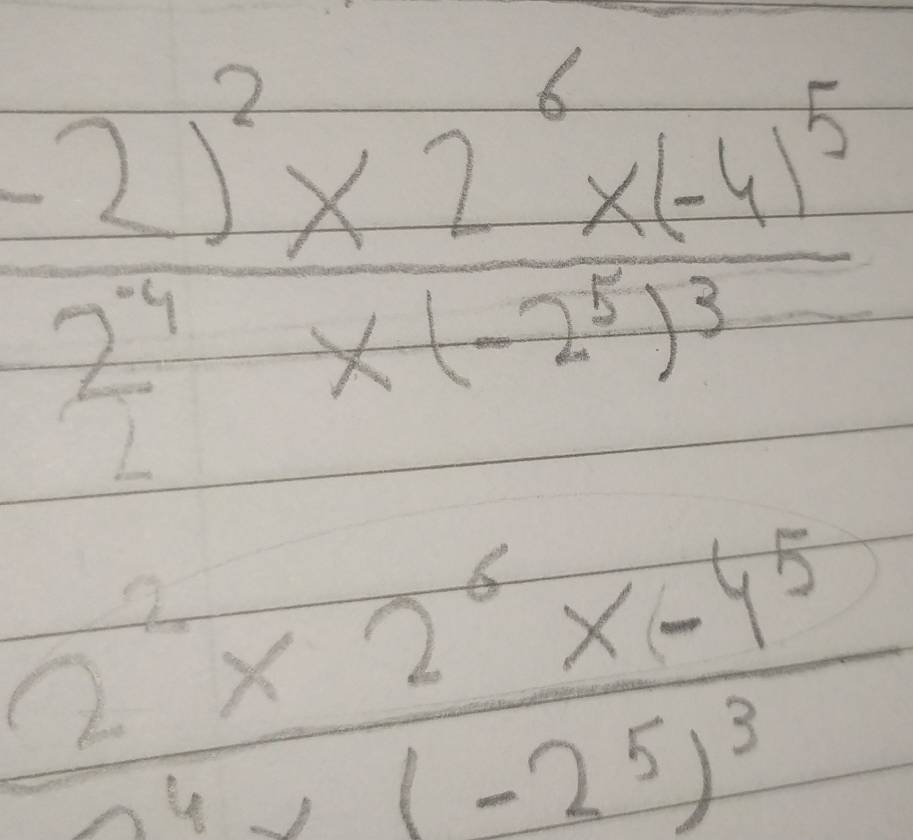 -2)² × 2⁶ × (-4)⁵
2⁻⁴ × (-2⁵)³
2
2² × 2⁶ × (-4⁵
2⁴ × (-2⁵)³